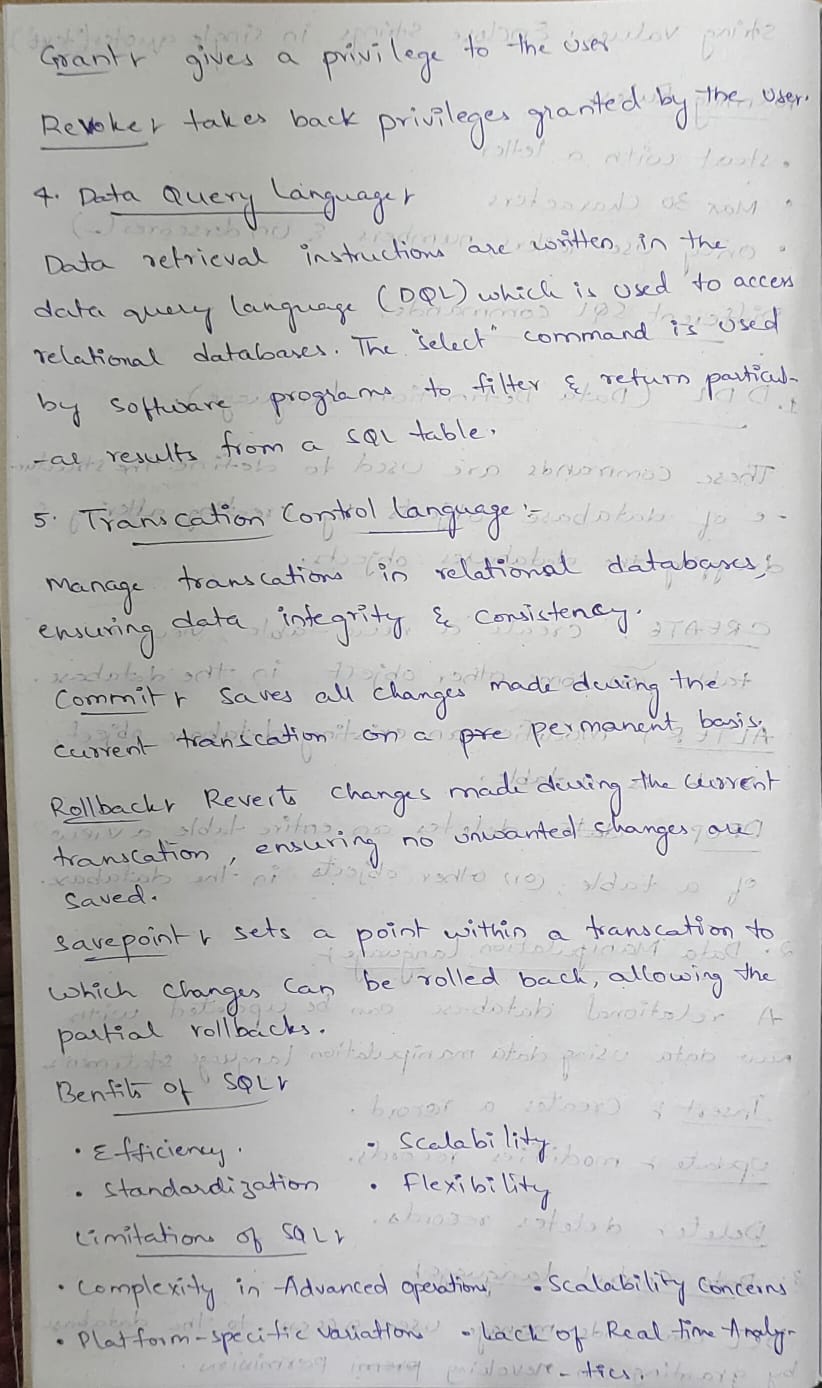 Grant:- gives a privilege to the user
Revoke:- takes back privileges granted by the user.
4. Data Query Language:-
Data retrieval instructions are written in the
data query language (DQL) which is used to access
relational databases. The "select" command is used
by software programs to filter & return particul-
-ar results from a SQL table.
5. Transcation Control language :-
Manage transcations in relational databases,
ensuring data integrity & consistency.
Commit:- saves all changes made during the
current transcation on a pre permanent basis.
Rollback:- Reverts changes made during the current
transcation, ensuring no unwanted changes are
saved.
savepoint:- sets a point within a transcation to
which changes can be rolled back, allowing the
partial rollbacks.
Benfits of SQL:-
• Efficiency. • Scalability
• Standardization • Flexibility
Limitations of SQL:-
• Complexity in Advanced operations, • Scalability Concerns
• Platform-specific Variations • Lack of Real time Analy-
- tics.